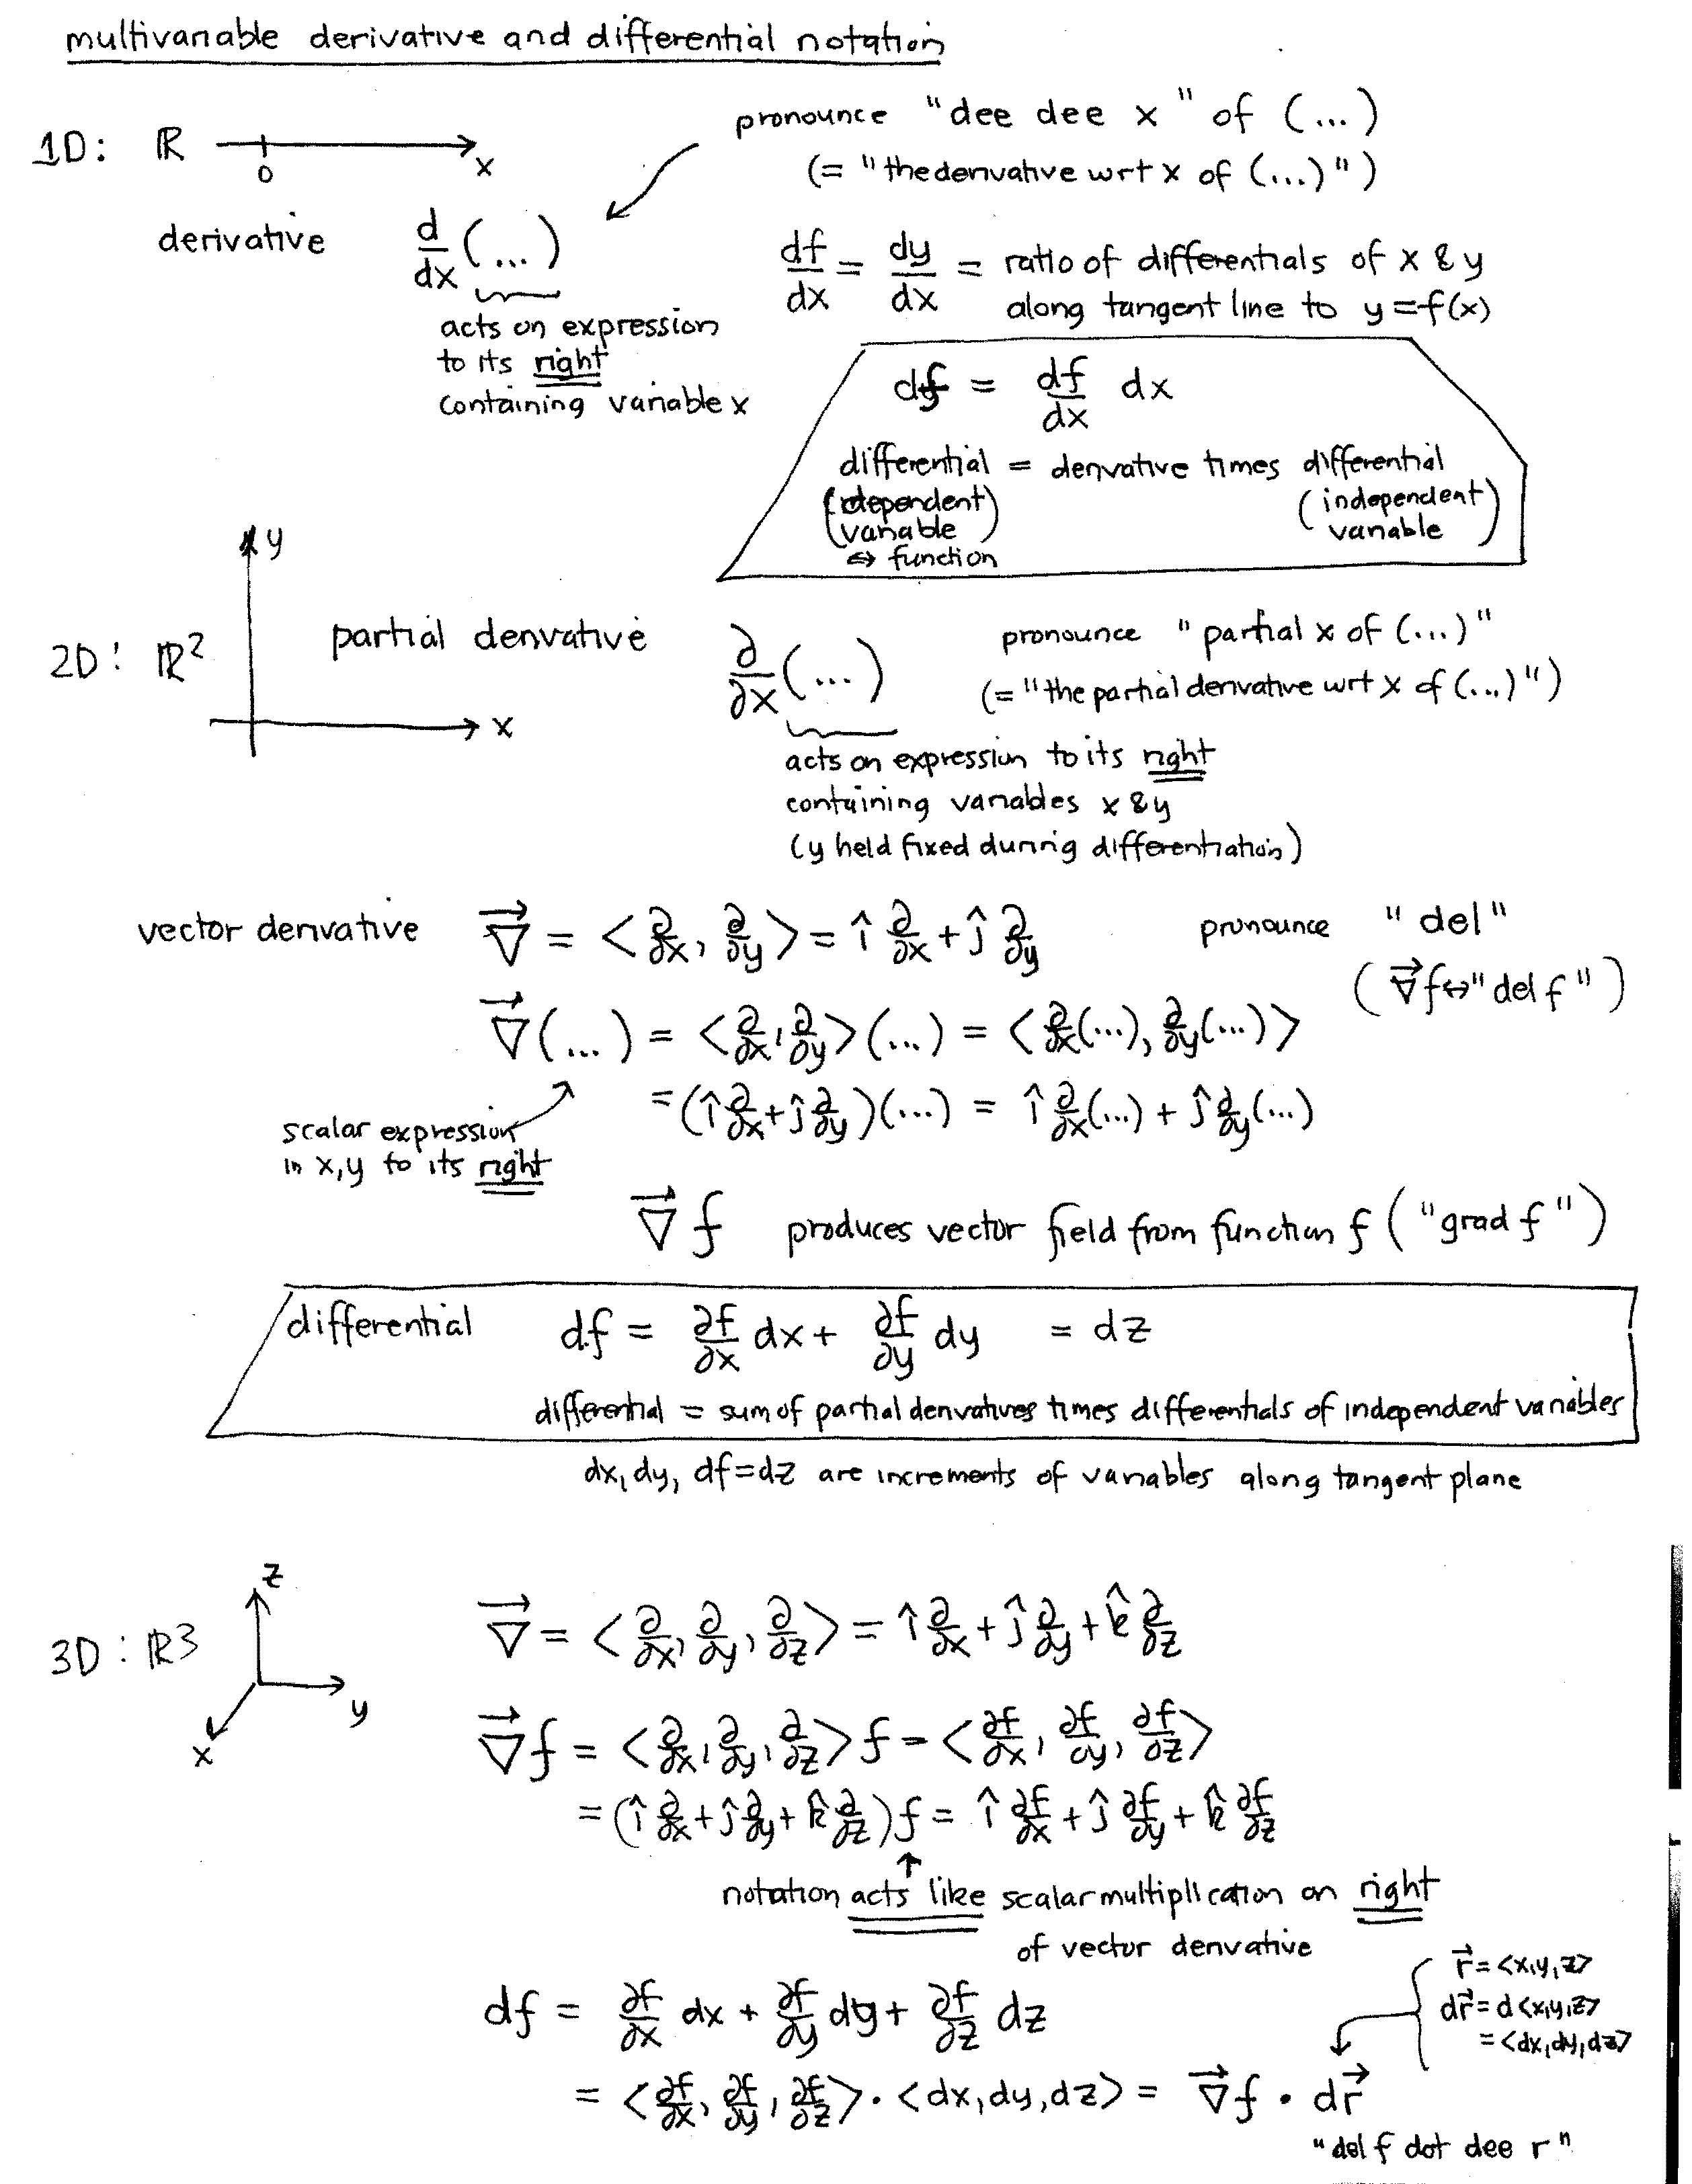 multivariable derivative and differential notation
1D: ℝ 0 x
pronounce "dee dee x" of (...)
(= "the derivative wrt x of (...)")
derivative d/dx (...)
acts on expression
to its right
containing variable x
df/dx = dy/dx = ratio of differentials of x & y
along tangent line to y = f(x)
df = df/dx dx
differential = derivative times differential
(dependent variable) (independent variable)
⇔ function
2D: ℝ² y x
partial derivative ∂/∂x (...)
pronounce "partial x of (...)"
(= "the partial derivative wrt x of (...)")
acts on expression to its right
containing variables x & y
(y held fixed during differentiation)
vector derivative ∇⃗ = <∂/∂x, ∂/∂y> = î ∂/∂x + ĵ ∂/∂y pronounce "del"
(∇⃗f ↔ "del f")
∇⃗(...) = <∂/∂x, ∂/∂y>(...) = <∂/∂x(...), ∂/∂y(...)>
= (î ∂/∂x + ĵ ∂/∂y)(...) = î ∂/∂x(...) + ĵ ∂/∂y(...)
scalar expression
in x,y to its right
∇⃗f produces vector field from function f ("grad f")
differential df = ∂f/∂x dx + ∂f/∂y dy = dz
differential = sum of partial derivatives times differentials of independent variables
dx, dy, df=dz are increments of variables along tangent plane
3D: ℝ³ z y x
∇⃗ = <∂/∂x, ∂/∂y, ∂/∂z> = î ∂/∂x + ĵ ∂/∂y + k̂ ∂/∂z
∇⃗f = <∂/∂x, ∂/∂y, ∂/∂z> f = <∂f/∂x, ∂f/∂y, ∂f/∂z>
= (î ∂/∂x + ĵ ∂/∂y + k̂ ∂/∂z) f = î ∂f/∂x + ĵ ∂f/∂y + k̂ ∂f/∂z
notation acts like scalar multiplication on right
of vector derivative
df = ∂f/∂x dx + ∂f/∂y dy + ∂f/∂z dz
r⃗ = <x,y,z>
dr⃗ = d<x,y,z>
= <dx,dy,dz>
= <∂f/∂x, ∂f/∂y, ∂f/∂z> · <dx,dy,dz> = ∇⃗f · dr⃗
"del f dot dee r"